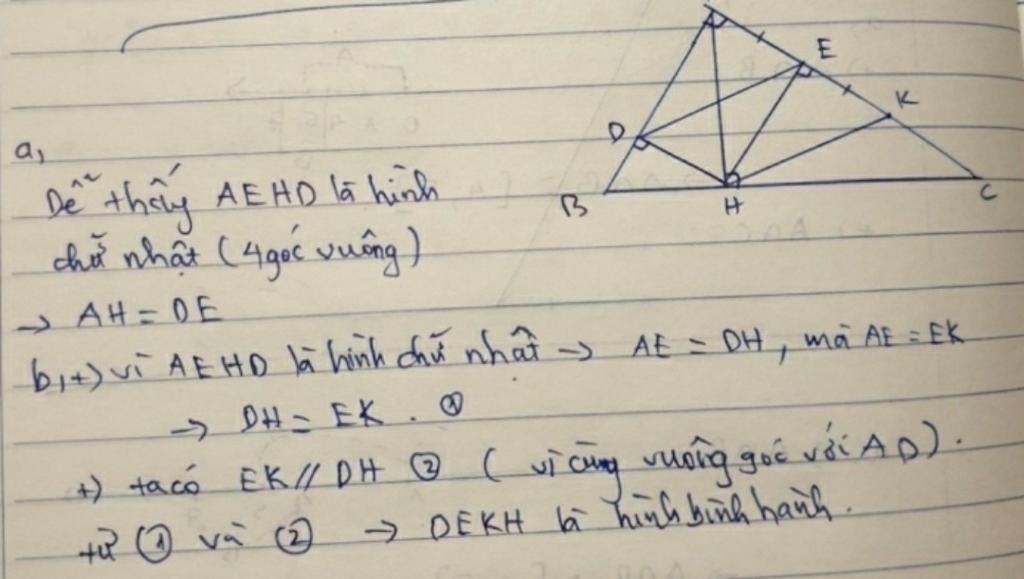 E
K
D
B
H
C
a,
Dễ thấy AEHD là hình
chữ nhật (4 góc vuông)
→ AH = DE
b, +) vì AEHD là hình chữ nhất → AE = DH, mà AE = EK
→ DH = EK. ①
+) ta có EK // DH ② (vì cùng vuông góc với AD).
từ ① và ② → DEKH là hình bình hành.